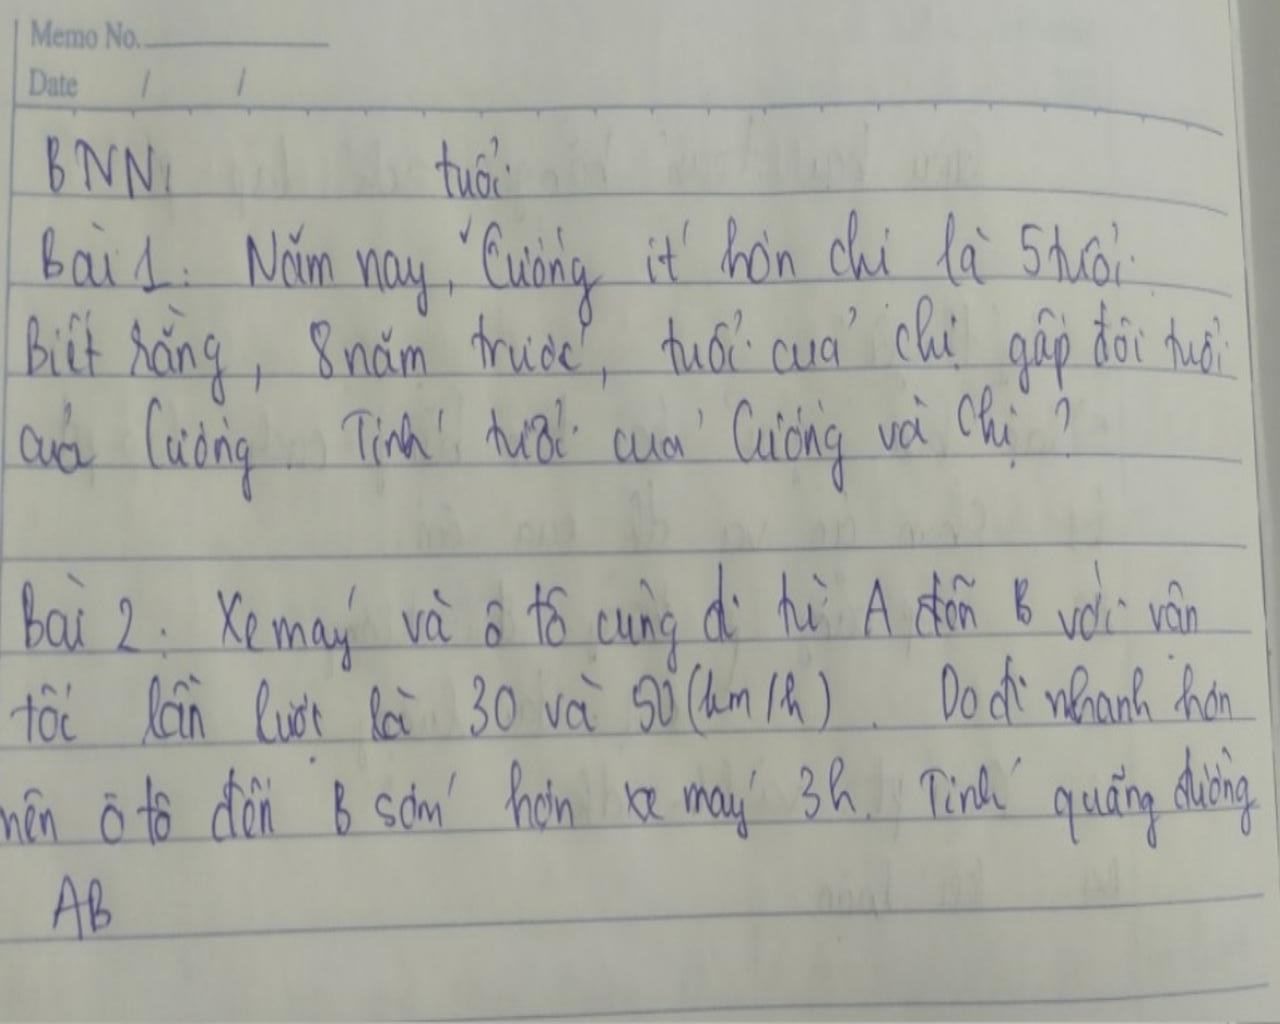 Memo No.
Date / /
BNN: tuổi
Bài 1: Năm nay, Cường ít hơn chị là 5 tuổi.
Biết rằng, 8 năm trước, tuổi của chị gấp đôi tuổi
của Cường. Tính tuổi của Cường và chị?
Bài 2: Xe máy và ô tô cùng đi từ A đến B với vận
tốc lần lượt là 30 và 50 (km/h). Do đi nhanh hơn
nên ô tô đến B sớm hơn xe máy 3h. Tính quãng đường
AB